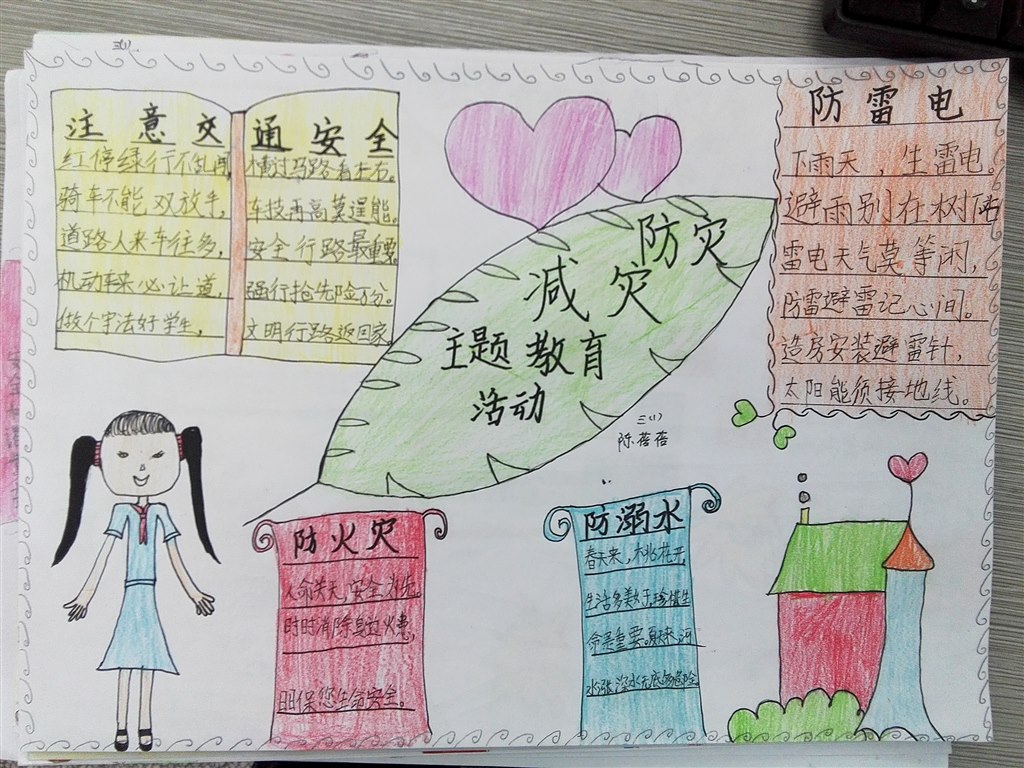 三(1)
注意交通安全
红停绿行不乱闯,
骑车不能双放手,
道路人来车往多,
机动车来必让道,
做个守法好学生,
横过马路看左右。
车技再高莫逞能。
安全行路最重要。
强行抢先险万分。
文明行路返回家。
防灾
减灾
主题教育
活动
三(1)
陈蓓蓓
防雷电
下雨天,生雷电。
避雨别在树
雷电天气莫等闲,
防雷避雷记心间。
造房安装避雷针,
太阳能须接地线。
防火灾
人命关天,安全为先
时时消除身边火患,
保您生命安全。
防溺水
春天来,桃花开,
生活多美好珍惜生
命最重要。夏天来河
水涨,深水无底多危险